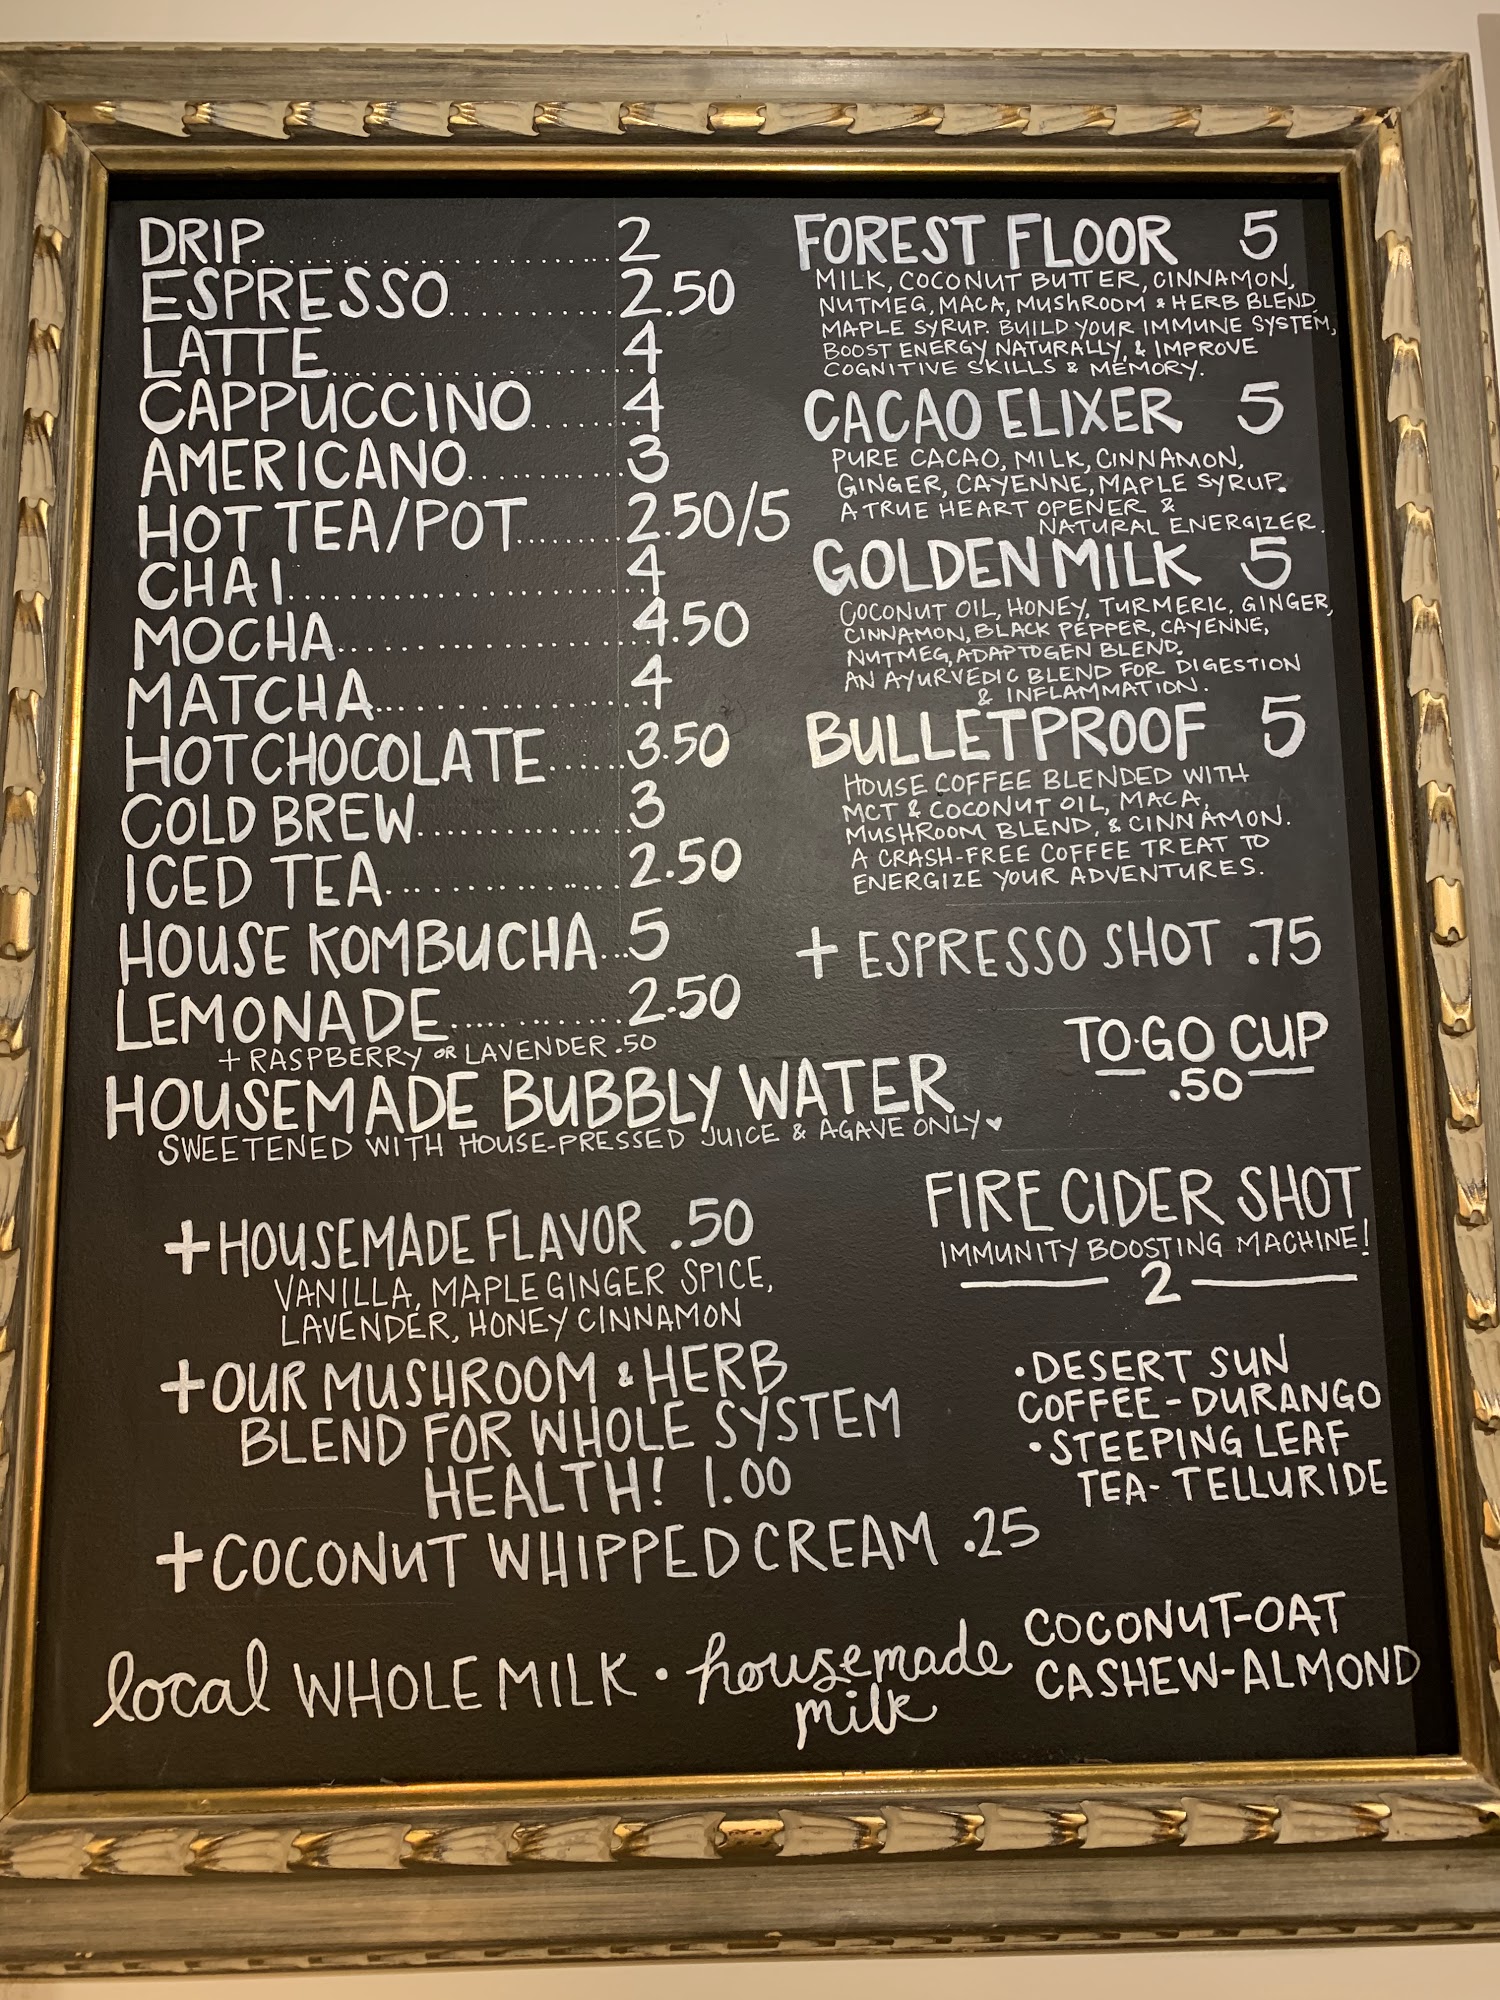 DRIP.................... 2
ESPRESSO............ 2.50
LATTE.................... 4
CAPPUCCINO....... 4
AMERICANO........... 3
HOT TEA/POT....... 2.50/5
CHAI....................... 4
MOCHA.................. 4.50
MATCHA................ 4
HOT CHOCOLATE..... 3.50
COLD BREW............ 3
ICED TEA............... 2.50
HOUSE KOMBUCHA... 5
LEMONADE............ 2.50
+ RASPBERRY OR LAVENDER .50
HOUSEMADE BUBBLY WATER
SWEETENED WITH HOUSE-PRESSED JUICE & AGAVE ONLY ♥
+ HOUSEMADE FLAVOR .50
VANILLA, MAPLE GINGER SPICE,
LAVENDER, HONEY CINNAMON
+ OUR MUSHROOM & HERB
BLEND FOR WHOLE SYSTEM
HEALTH! 1.00
+ COCONUT WHIPPED CREAM .25
FOREST FLOOR 5
MILK, COCONUT BUTTER, CINNAMON,
NUTMEG, MACA, MUSHROOM & HERB BLEND,
MAPLE SYRUP. BUILD YOUR IMMUNE SYSTEM,
BOOST ENERGY NATURALLY, & IMPROVE
COGNITIVE SKILLS & MEMORY.
CACAO ELIXER 5
PURE CACAO, MILK, CINNAMON,
GINGER, CAYENNE, MAPLE SYRUP.
A TRUE HEART OPENER &
NATURAL ENERGIZER.
GOLDEN MILK 5
COCONUT OIL, HONEY, TURMERIC, GINGER,
CINNAMON, BLACK PEPPER, CAYENNE,
NUTMEG, ADAPTOGEN BLEND.
AN AYURVEDIC BLEND FOR DIGESTION
& INFLAMMATION.
BULLETPROOF 5
HOUSE COFFEE BLENDED WITH
MCT & COCONUT OIL, MACA,
MUSHROOM BLEND, & CINNAMON.
A CRASH-FREE COFFEE TREAT TO
ENERGIZE YOUR ADVENTURES.
+ ESPRESSO SHOT .75
TO-GO CUP
.50
FIRE CIDER SHOT
IMMUNITY BOOSTING MACHINE!
2
• DESERT SUN
COFFEE - DURANGO
• STEEPING LEAF
TEA - TELLURIDE
local WHOLE MILK • housemade
milk
COCONUT-OAT
CASHEW-ALMOND